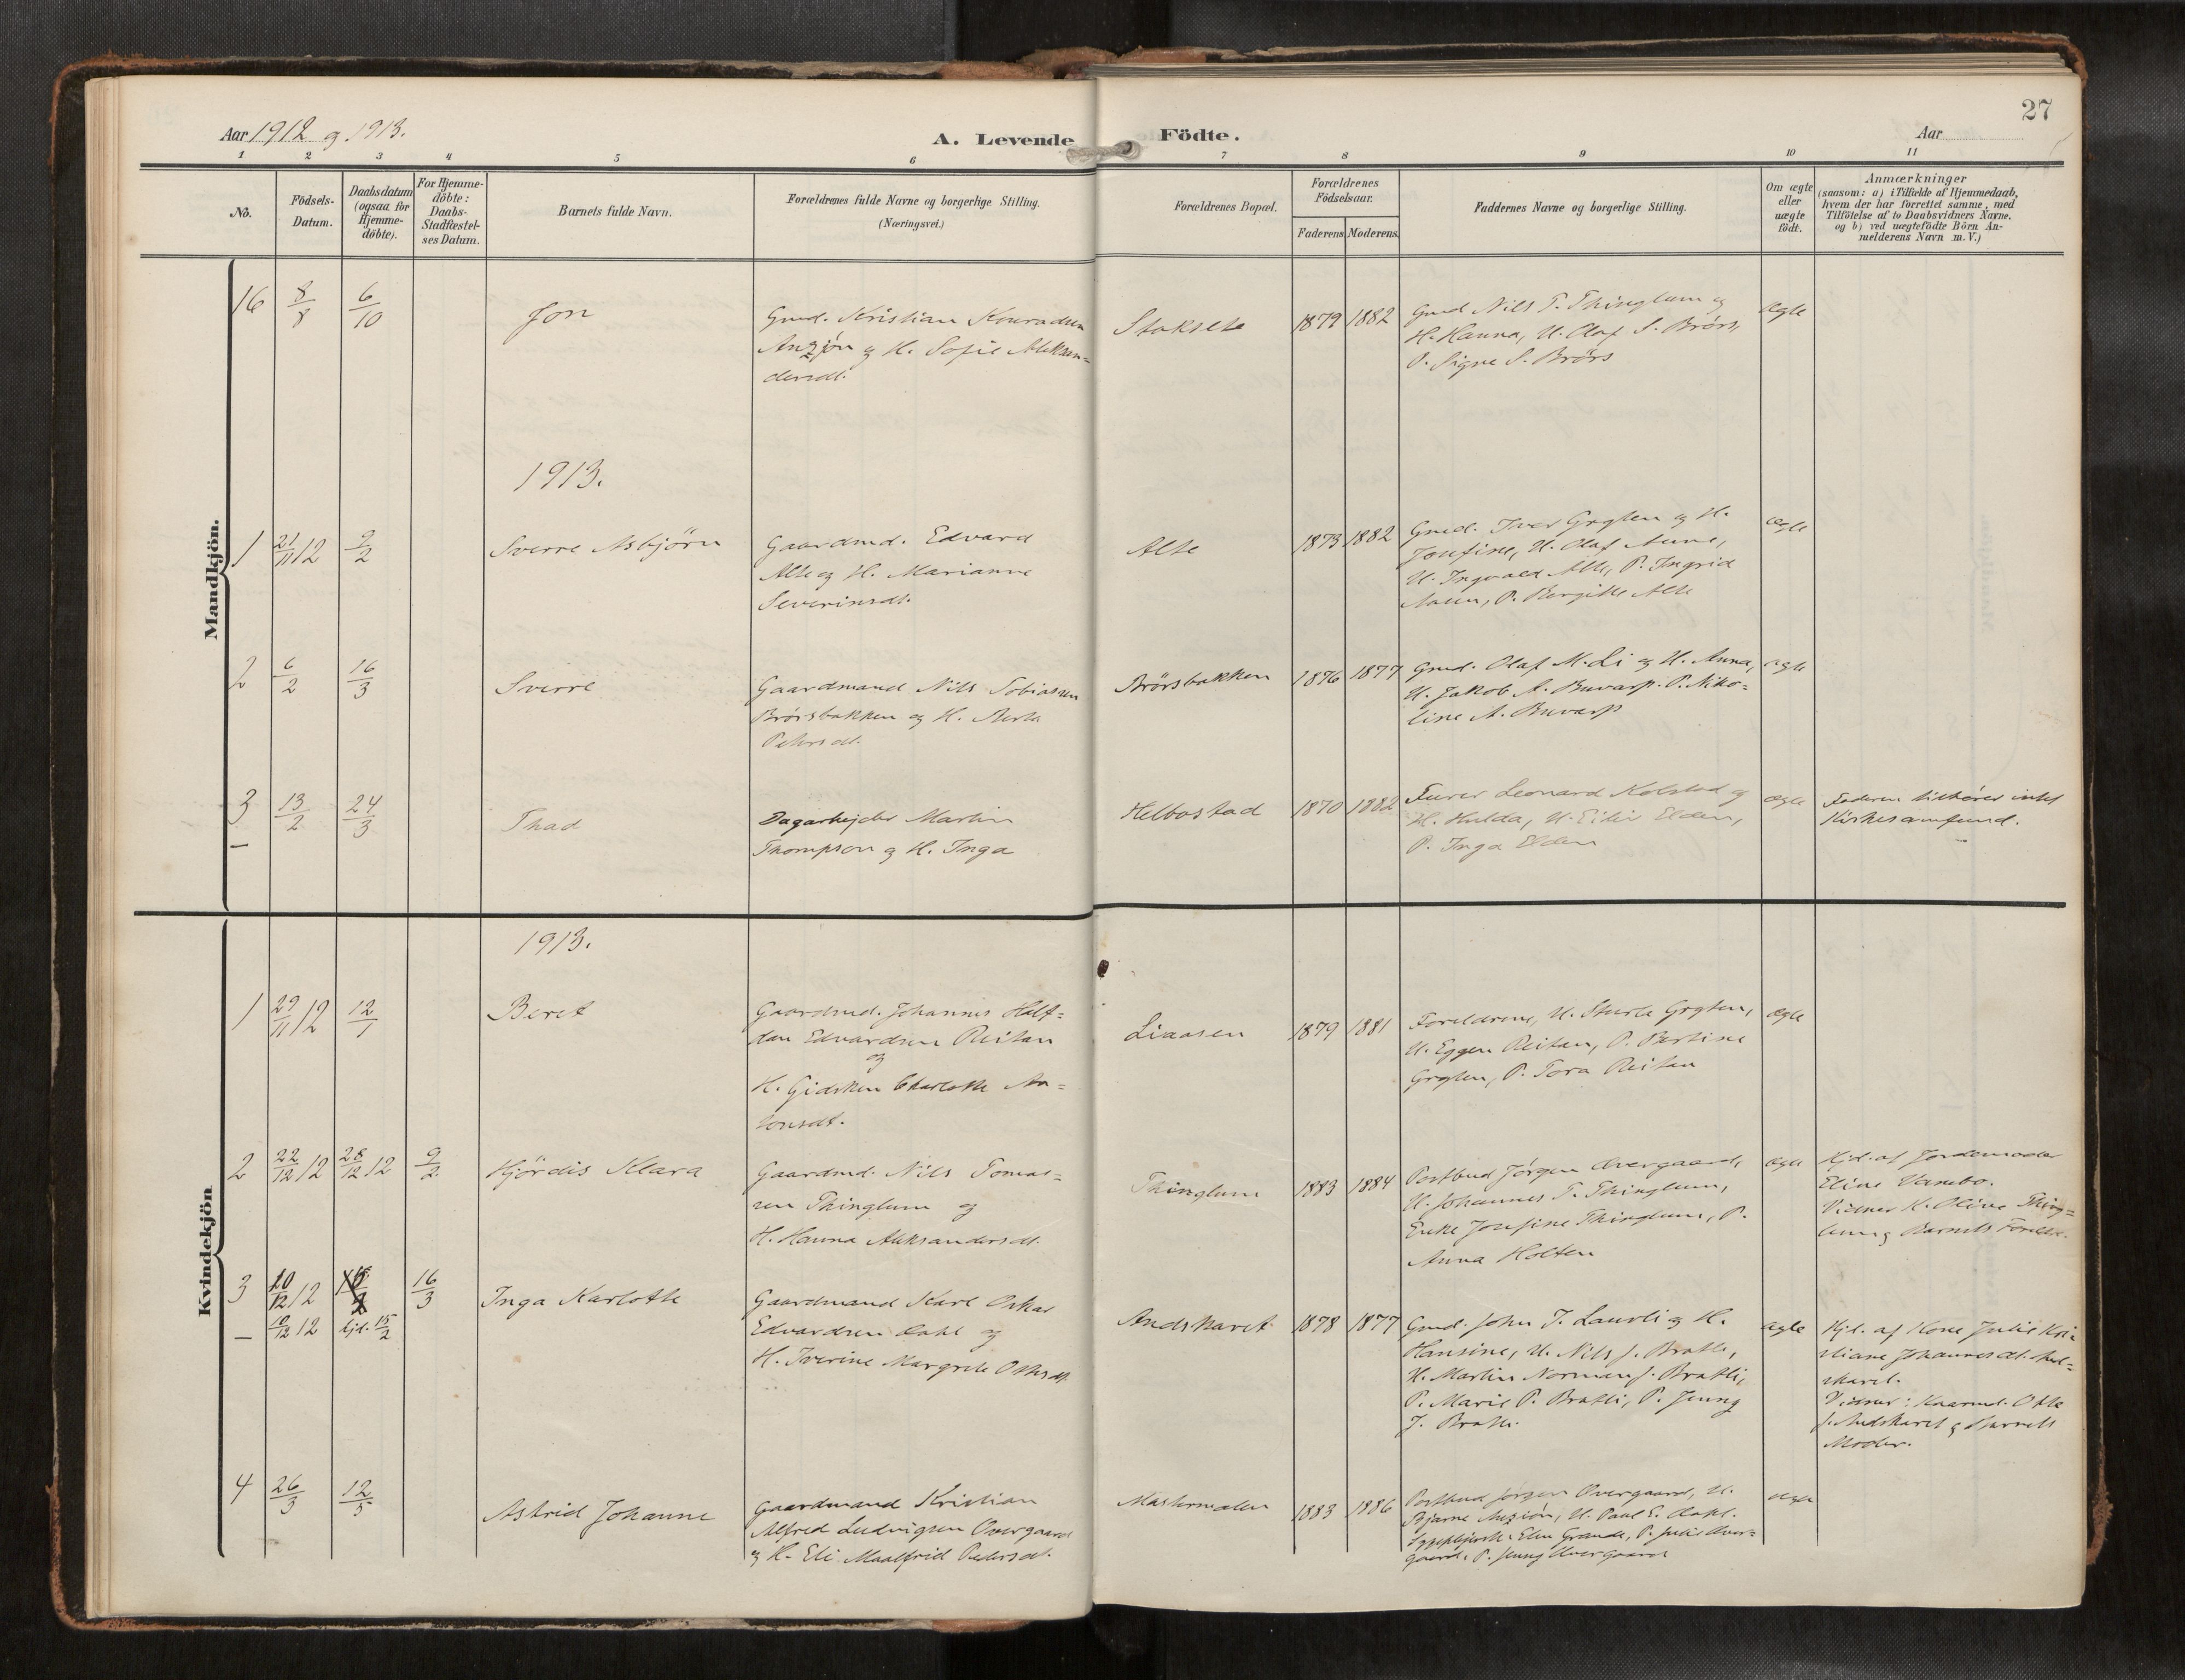 27
Aar 1912 og 1913.
A. Levende Födte.
Aar
1 2 3 4 5 6 7 8 9 10 11
No.
Födsels-
Datum.
Daabsdatum
(ogsaa for
Hjemme-
döbte).
For Hjemme-
döbte:
Daabs-
Stadfæstel-
ses Datum.
Barnets fulde Navn.
Forældrenes fulde Navne og borgerlige Stilling.
(Næringsvei.)
Forældrenes Bopæl.
Forældrenes
Födselsaar.
Faderens Moderens
Faddernes Navne og borgerlige Stilling.
Om ægte
eller
uægte
födt.
Anmærkninger
(saasom: a) i Tilfælde af Hjemmedaab,
hvem der har forrettet samme, med
Tilföielse af to Daabsvidners Navne.
og b) ved uægtefödte Börn An-
melderens Navn m. V.)
Mandkjön.
16 8/8 6/10 Jon
Gmd. Kristian Konradsen
Anzjön og H. Sofie Aleksan=
dersdt.
Stokselte 1879 1882
Gmd Nils T. Thinglum og
H. Hanna, U. Olaf S. Brørs,
P. Signe S. Brørs
ægte
1913.
1 21/11 12 9/2 Sverre Asbjörn
Gaardmd. Edvard
Alte og H. Marianne
Severinsdt.
Alte 1873 1882
Gmd. Iver Grgten og H.
Josefine, U. Olaf Aune,
U. Ingvald Alte, P. Ingrid
Aaen, P. Bergitte Alte
ægte
2 6/2 16/3 Sverre
Gaardmand Nils Tobiassen
Brørsbakken og H.
Petersdt.
Brørsbakken 1876 1877
Gmd. Olaf M. Li og H. Anna,
U. Jakob A. Buvarp. P. Niko=
line A. Buvarp
ægte
3 13/2 24/3 Thad
–
Dagarbejder Martin
Thompson og H. Inga
Helbostad 1870 1882
Leonard Kolstad og
H. Hulda, U. Eiliv Elden,
P. Inga Elden
ægte
Faderen tilhører intet
Kirkesamfund.
Kvindekjön
1913.
1 29/11 12 12/1 Beret
Gaardmd. Johannes Half=
dan Edvardsen Reitan
og
H. Gidsken Charlotte An=
tonsdt.
Liaasen 1879 1881
Foreldrene, U. Sturla Grgten,
U. Eggen Reitan, P. Bertine
Grgten, P. Tora Reitan
ægte
2 22/12 12 28/12 12 9/2 Hjördis Klara
Gaardmd. Nils Tomas=
sen Thinglum og
H. Hanna Aleksandersdt.
Thinglum 1883 1884
Postbud Jørgen Overgaard,
U. Johannes T. Thinglum,
Enke Josefine Thinglum, P.
Anna Holten
ægte
Hjd. af Jordemoder
Eline Vambo.
Vidner K. Oline Thing=
lum og Barnets Foreldre.
3 10/12 12 16/3 Inga Karlotte
– 10/12 12 hjd. 15/2
Gaardmand Karl Oskar
Edvardsen Dahl og
H. Iverine Margrete Ottesdt.
Andskaret 1878 1877
Gmd. John J. Laurli og H.
Hansine, U. Nils J. Bratli,
U. Martin Norman J. Bratli,
P. Marie P. Bratli, P. Jenny
J. Bratli.
ægte
Hjd. af Kone Julie Kri=
stiane Johannesdt. And=
skaret.
Vidner: Kaarmd. Otte
J. Andskaret og Barnets
Moder.
4 26/3 12/5 Astrid Johanne
Gaardmand Kristian
Alfred Ludvigsen Overgaard
og H. Eli Maalfrid Pedersdt.
Mastermoelen 1883 1886
Postbud Jørgen Overgaard, U.
Bjarne Anzjön, U. Paul E. Dahl.
Sygepleierske Elen Grande, P. Julie Over=
gaard, P. Jenny Overgaard
ægte